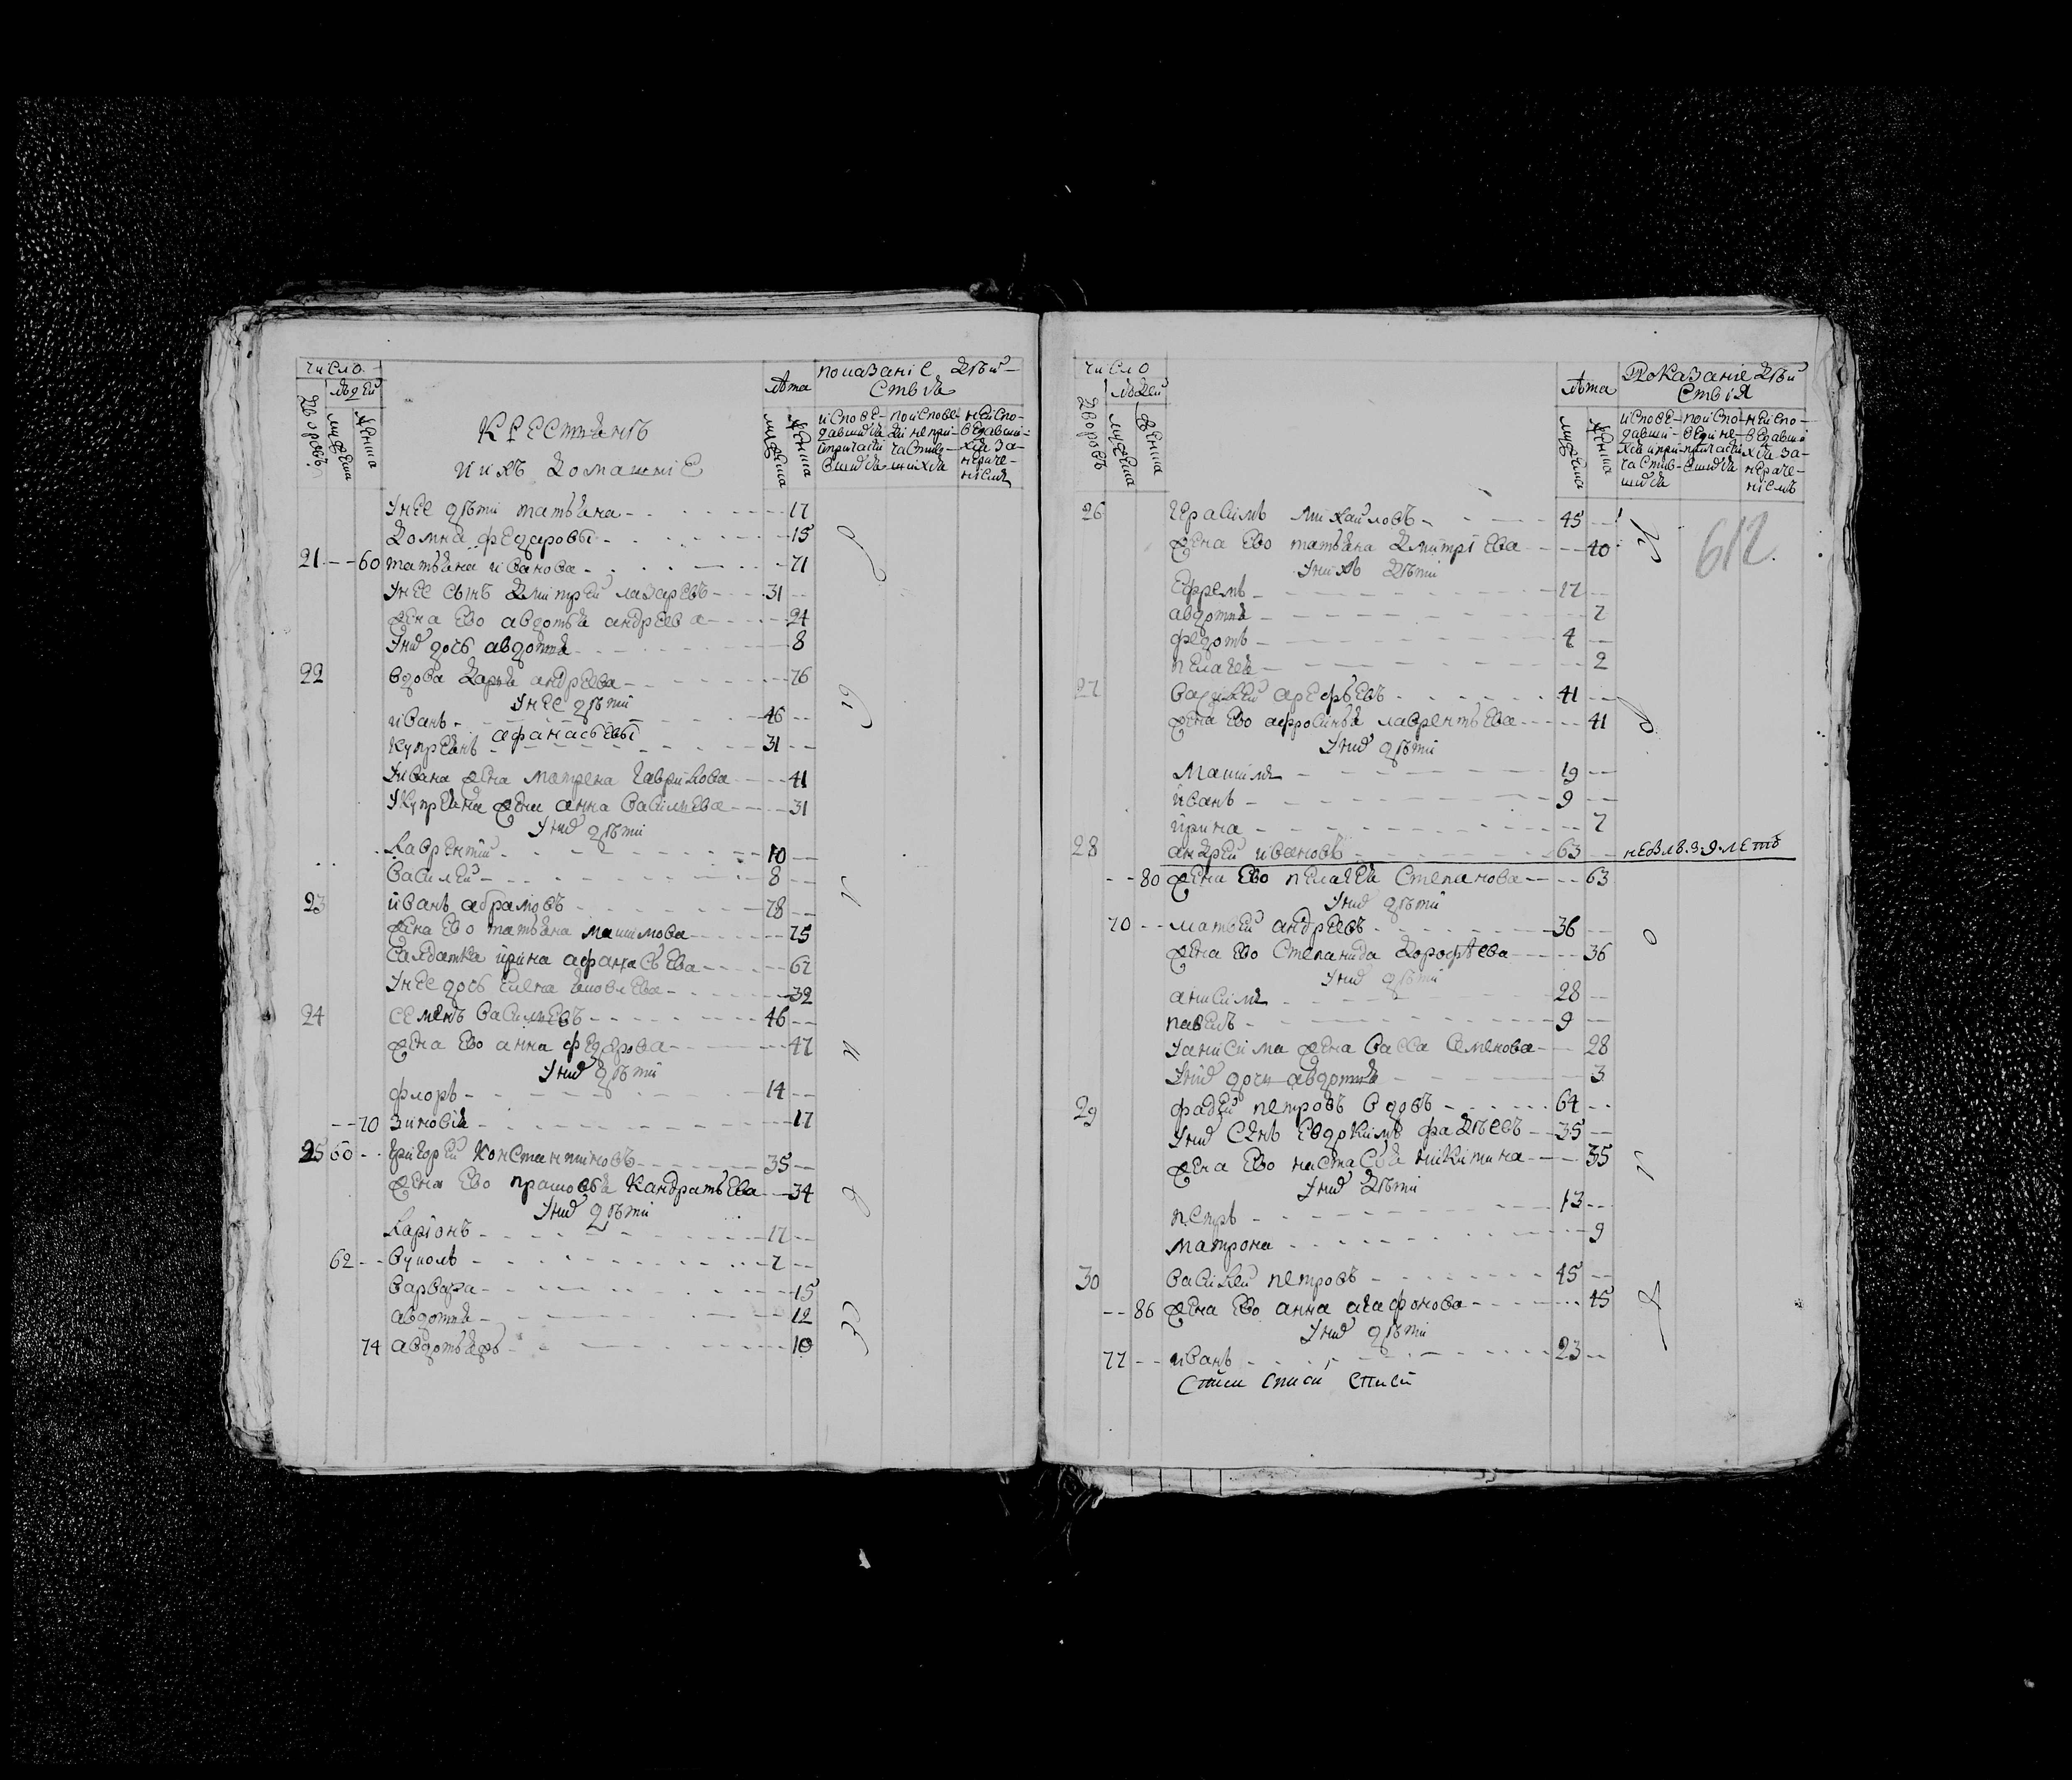 число
людей
дворовъ
мужеска
женска
крестьянъ
и ихъ домашніе
лѣта
мужеска
женска
показаніе дѣй-
ствія
исповѣ-
давшія
и причасти
вшіяся
поисповѣ-
ди непри-
частив-
шихся
неиспо-
вѣдавші-
хся за-
нераче-
ніемъ
У нее дѣти татьяна - 17
домна федоровы - 15
21 - - 60 татьяна иванова - 71
У нее сынъ дмитреи лазаревъ - 31
жена ево авдотья андреева - 24
У них дочь авдотья - 8
22 вдова дарья андреева - 76
У нее дѣти
иванъ - 46
афанасьевы
купреянъ - 31
У ивана жена матрена гаврилова - 41
У купреяна жена анна васильева - 31
У них дѣти
лаврентий - 10
василеи - 8
23 иванъ абрамовъ - 78
жена ево татьяна макимова - 75
салдатка ирина афанасьева - 67
У нее дочь елена иовлева - 32
24 семенъ васильевъ - 46
жена ево анна федорова - 47
У них дѣти
флоръ - 14
- - 70 зиновія - 17
25 60 - - григореи константиновъ - 35
жена ево прасковья кандратьева - 34
У них дѣти
ларіонъ - 17
62 - - вуколъ - 7
варвара - 15
авдотья - 12
74 - 10
число
людей
дворовъ
мужеска
женска
лѣта
мужеска
женска
Показаніе дѣй
ствія
исповѣ-
давші-
хся и при-
частив-
шихся
поиспо-
вѣди не-
причасти
вшихся
неиспо-
вѣдавші
хся за-
нераче-
ніемъ
612.
26 герасимъ михайловъ - 45
жена ево татьяна дмитріева - 40
У нихъ дѣти
ефремъ - 17
авдотья - 7
федотъ - 4
пелагея - 2
27 василей арефьевъ - 41
жена ево афросинья лаврентьева - 41
У них дѣти
макимъ - 19
иванъ - 9
ирина - 7
28 андрей ивановъ - 63
- - 80 жена ево пелагея степанова - 63
У них дѣти
70 - - матвей андреевъ - 36
жена ево степанида дорофѣева - 36
У них дѣти
анисимъ - 28
павелъ - 9
У анисима жена васса семенова - 28
У них дочи авдотья - 3
29 фадѣй петровъ вдовъ - 64
У них сынъ евдокимъ фадѣевъ - 35
жена ево настасья никитина - 35
У них дѣти
петръ - 13
матрона - 9
30 василей петровъ - 45
- - 86 жена ево анна агафонова - 45
У них дѣти
77 - - иванъ - 23